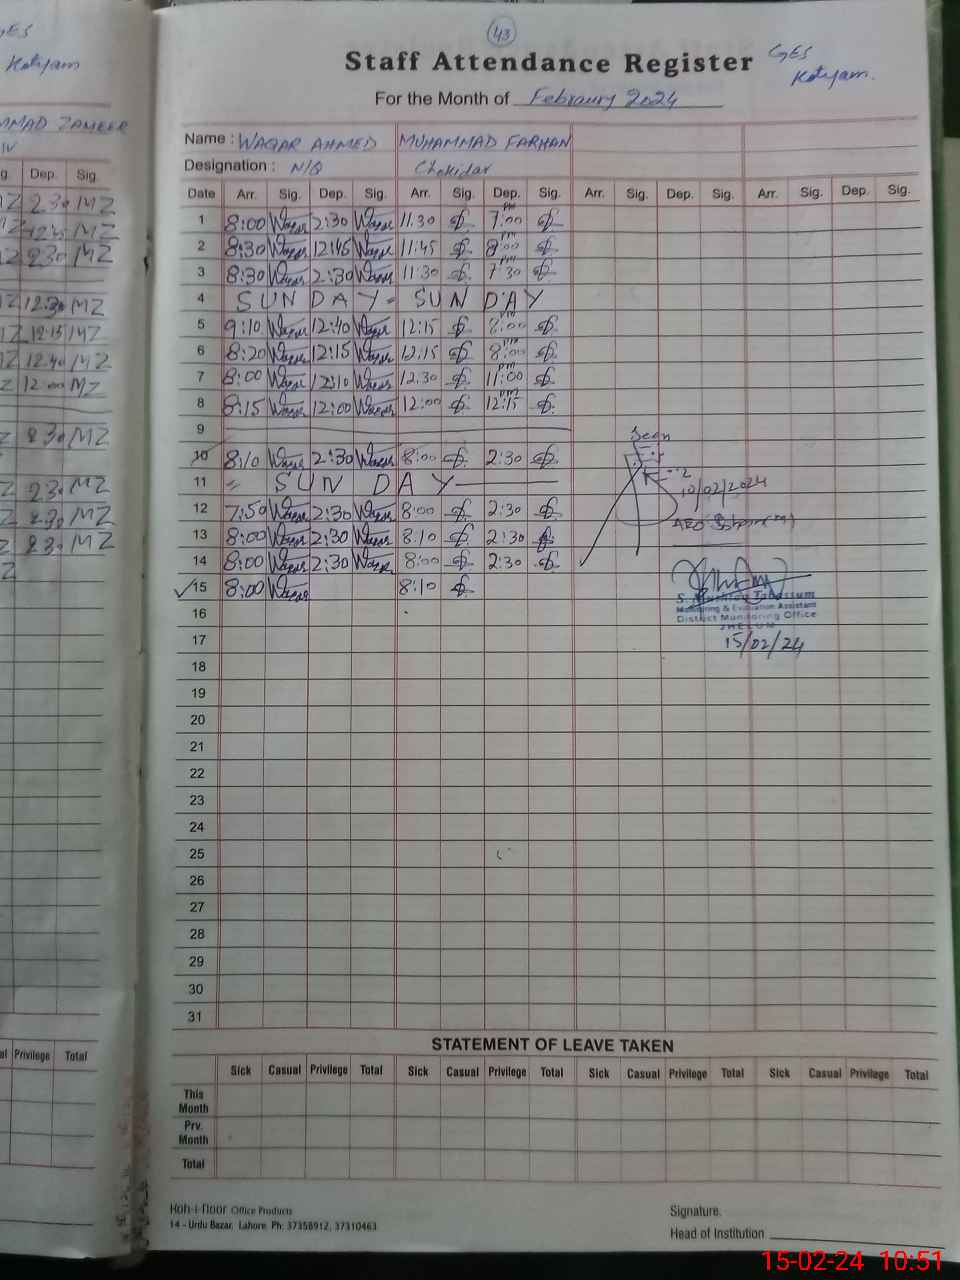 GES
Kotyam
MMAD ZAMEER
IV
g. Dep. Sig.
MZ 2.30 MZ
MZ
MZ 2.30 MZ
MZ 12:30 MZ
MZ 12:15 MZ
MZ 12.40 MZ
Z 12:00 MZ
Z 2.30 MZ
Z 2.30 MZ
Z 2.30 MZ
Z 2.30 MZ
Z
al Privilege Total
43
Staff Attendance Register
GES
Kotyam.
For the Month of Febraury 2024
Name : WAQAR AHMED MUHAMMAD FARHAN
Designation : N/Q Chokidar
Date Arr. Sig. Dep. Sig. Arr. Sig. Dep. Sig. Arr. Sig. Dep. Sig. Arr. Sig. Dep. Sig.
1 8:00 Waqar 2:30 Waqar 11.30 7:00 PM
2 8:30 Waqar 12:45 Waqar 11:45 8:00 PM
3 8:30 Waqar 2:30 Waqar 11:30 7:30 PM
4 SUNDAY - SUNDAY
5 9:10 Waqar 12:40 Waqar 12:15 8:00 PM
6 8:20 Waqar 12:15 Waqar 12.15 8:00 PM
7 8:00 Waqar 12:10 Waqar 12.30 11:00 PM
8 8:15 Waqar 12:00 Waqar 12:00 12:15 PM
9
10 8:10 Waqar 2:30 Waqar 8:00 2:30
11 SUNDAY
12 7:50 Waqar 2:30 Waqar 8:00 2:30
13 8:00 Waqar 2:30 Waqar 8.10 2:30
14 8:00 Waqar 2:30 Waqar 8:00 2:30
15 8:00 Waqar 8:10
Seen
10/02/2024
AEO
S. Mushtaq Tabassum
Monitoring & Evaluation Assistant
District Monitoring Office
JHELUM
15/02/24
16
17
18
19
20
21
22
23
24
25
26
27
28
29
30
31
STATEMENT OF LEAVE TAKEN
Sick Casual Privilege Total Sick Casual Privilege Total Sick Casual Privilege Total Sick Casual Privilege Total
This Month
Prv. Month
Total
Koh-i-noor Office Products
14 - Urdu Bazar, Lahore. Ph: 37358912, 37310463
Signature.
Head of Institution
15-02-24 10:51